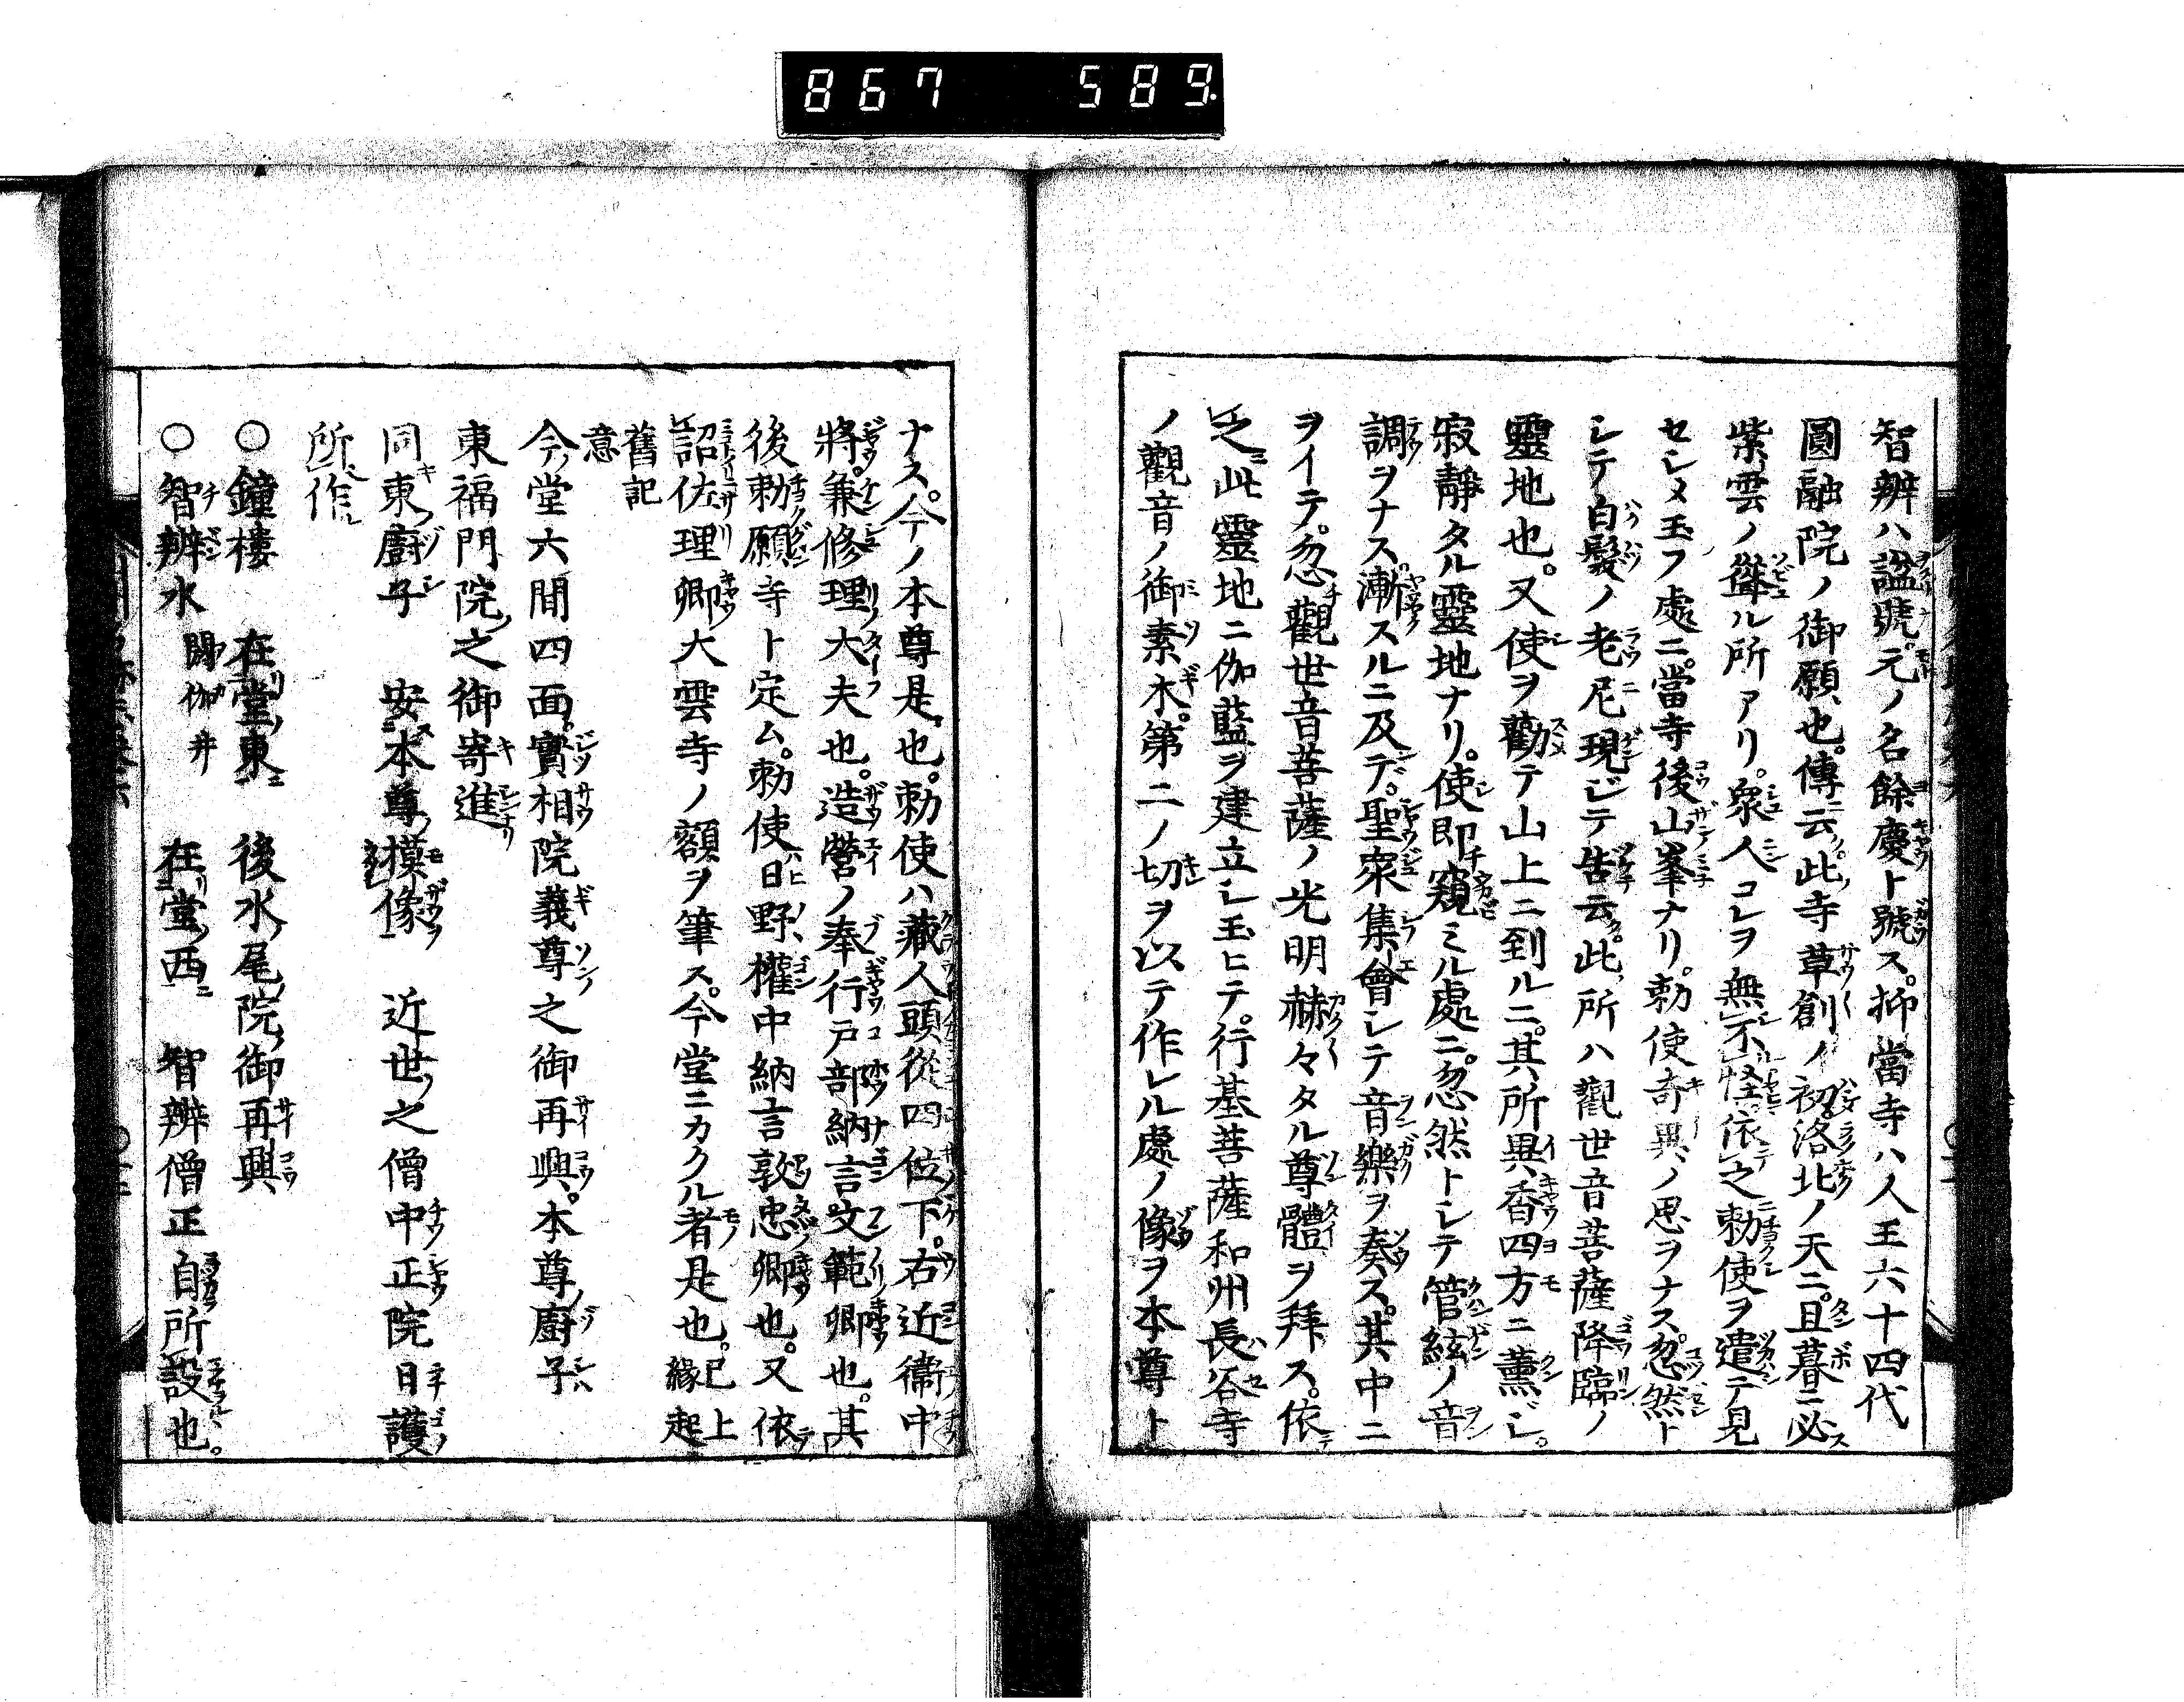 867 589.
智辨ハ謚號元ノ名餘慶ト號ス。抑當寺ハ人王六十四代
圓融院ノ御願也。傳云此寺草創ノ初。洛北ノ天ニ。旦暮ニ必ス
紫雲ノ聳ル所アリ。衆人コレヲ無不怪依之勅使ヲ遣テ見
セシメ玉フ處ニ。當寺後山峯ナリ。勅使奇異ノ思ヲナス忽然ト
シテ白髮ノ老尼現ジテ告云。此所ハ觀世音菩薩降臨ノ
靈地也。又使ヲ勸テ山上ニ到ルニ。其所異香四方ニ薰ジ。
寂靜タル靈地ナリ。使即窺ミル處ニ。忽然トシテ管絃ノ音
調ヲナス。漸スルニ及デ。聖衆集會シテ音樂ヲ奏ス。其中ニ
ヲイテ。忽觀世音菩薩ノ光明赫々タル尊體ヲ拜ス。依
之此靈地ニ伽藍ヲ建立シ玉ヒテ。行基菩薩和州長谷寺
ノ觀音ノ御素木。第二ノ切ヲ以テ作レル處ノ像ヲ本尊ト
ナス。今ノ本尊是也。勅使ハ藏人頭從四位下。右近衞中
將。兼修理大夫也。造營ノ奉行戸部納言文範卿也。其
後勅願寺ト定ム。勅使ハ日野權中納言敦忠卿也。又依
詔佐理卿大雲寺ノ額ヲ筆ス。今堂ニカクル者是也。已上緣起
舊記意
今堂六間四面。實相院義尊之御再興。本尊廚子ハ
東福門院之御寄進
同東廚子 安本尊摸像 近世之僧中正院日護
所作
○鐘樓 在堂東 後水尾院御再興
○智辨水 閼伽井 在堂西 智辨僧正自所設也。